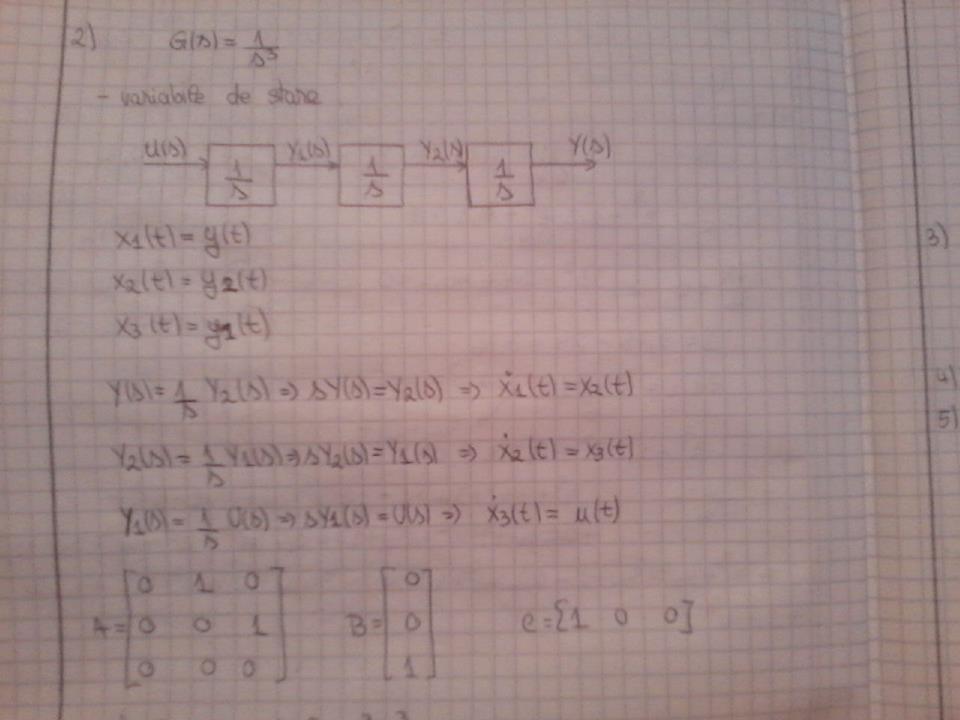 2) G(s) = 1/s³
- variabile de stare
U(s) 1/s Y1(s) 1/s Y2(s) 1/s Y(s)
x1(t) = y(t)
x2(t) = y2(t)
x3(t) = y1(t)
Y(s) = 1/s Y2(s) => sY(s) = Y2(s) => ẋ1(t) = x2(t)
Y2(s) = 1/s Y1(s) => sY2(s) = Y1(s) => ẋ2(t) = x3(t)
Y1(s) = 1/s U(s) => sY1(s) = U(s) => ẋ3(t) = u(t)
A = [0 1 0 B = [0 C = [1 0 0]
0 0 1 0
0 0 0] 1]
3)
4)
5)